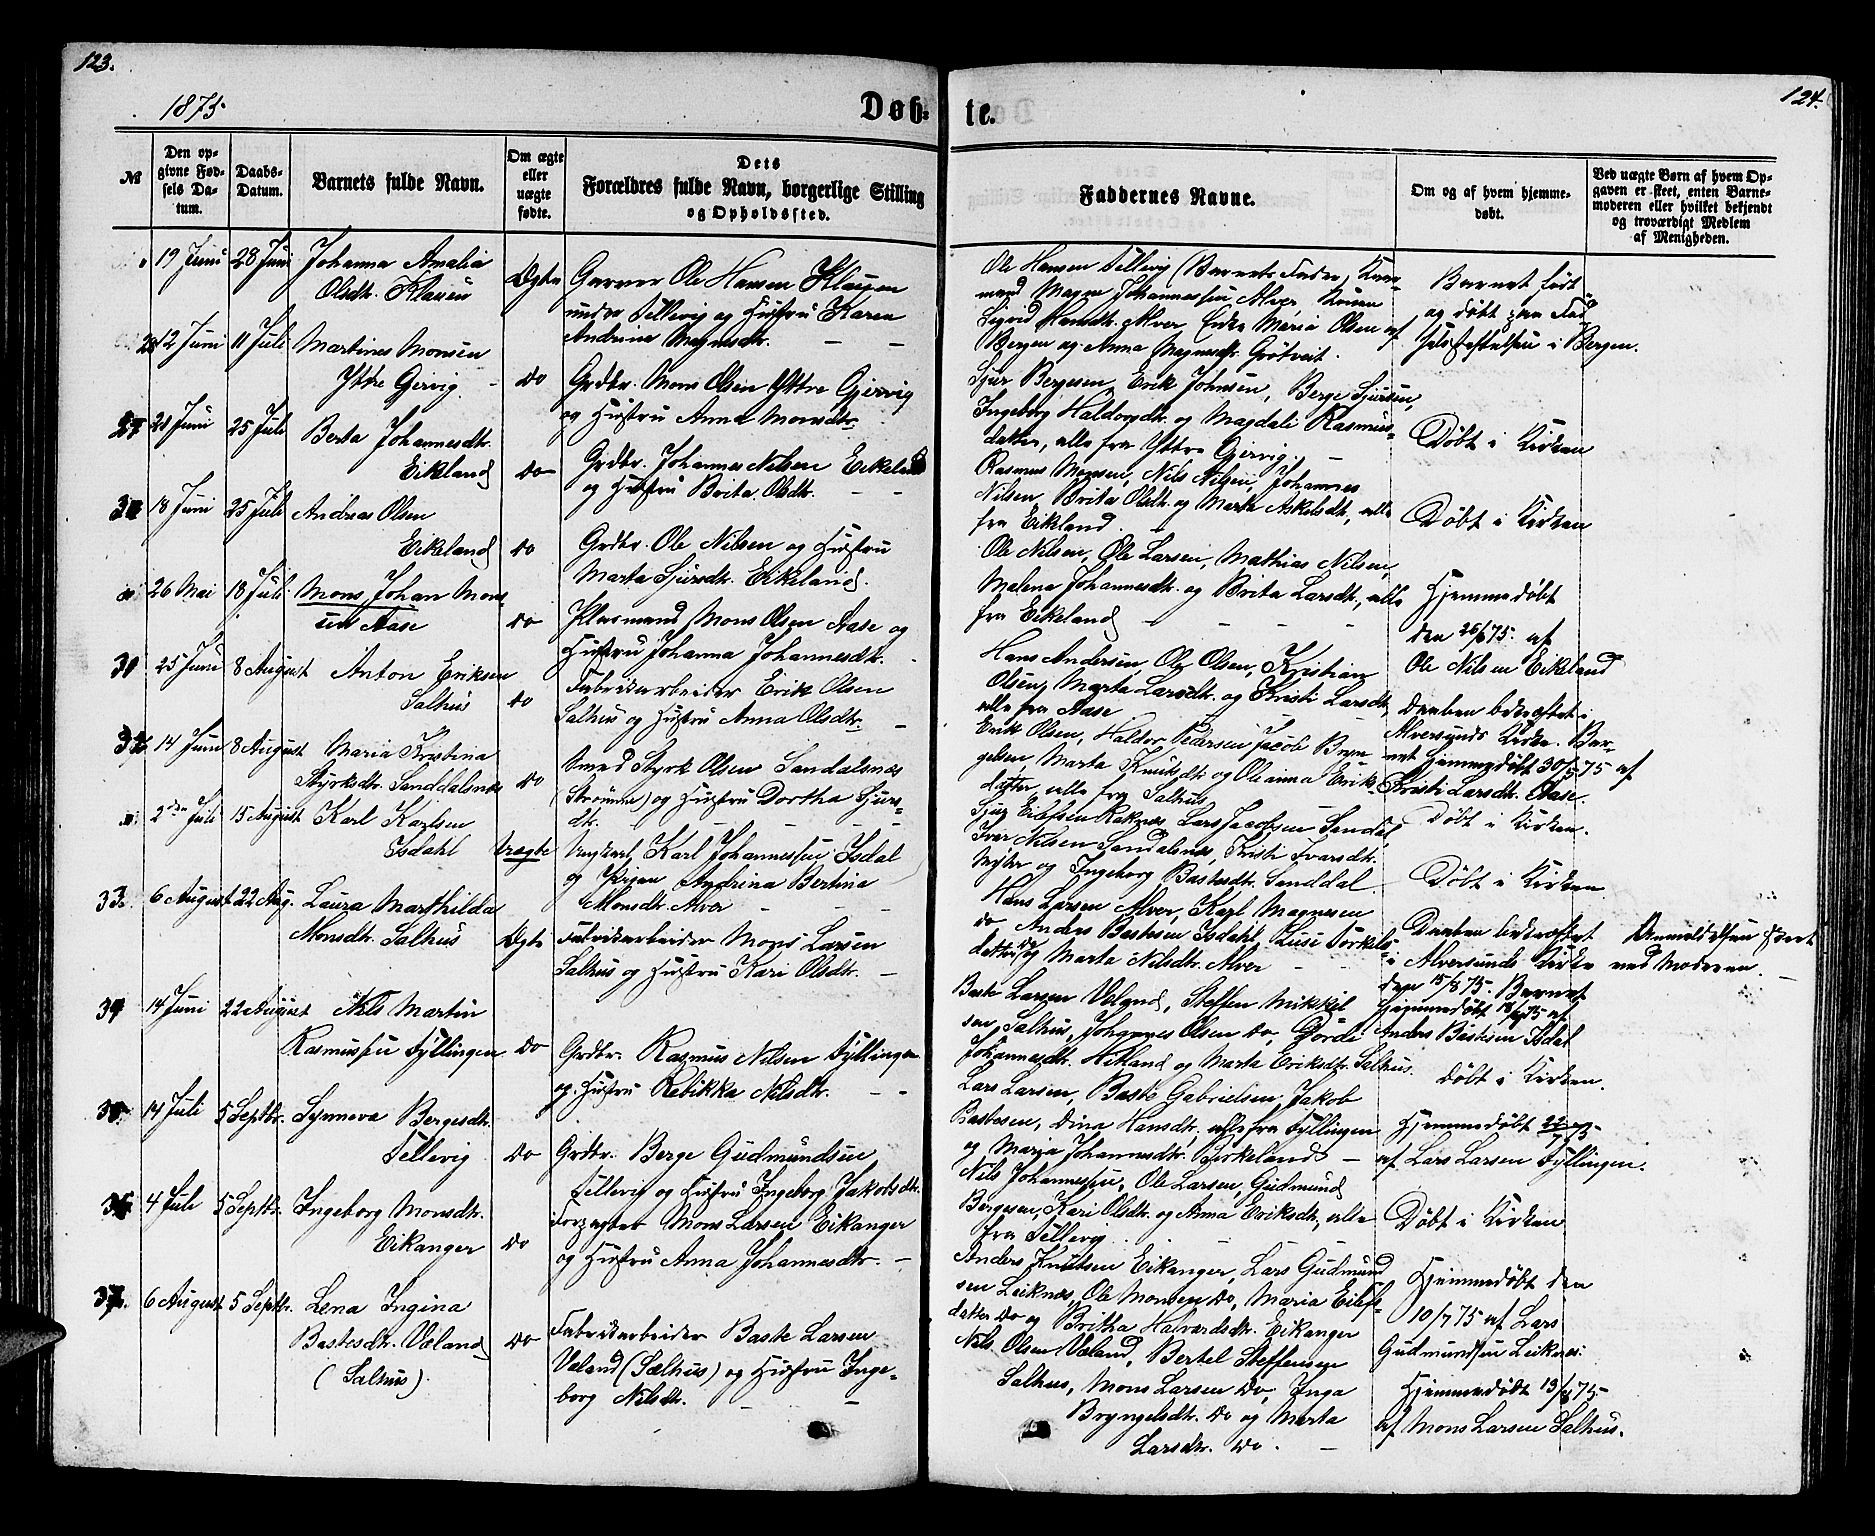 123.
1875
Døb-
№
Den op-
givne Fød-
sels Da-
tum.
Daabs-
Datum.
Barnets fulde Navn.
Om ægte
eller
uægte
fødte.
Dets
Forældres fulde Navn, borgerlige Stilling
og Opholdssted.
19 Juni 28 Juni Johanna Amalia
Olsdtr. Klauen Ægte
Garver Ole Hansen Klauen
under Tellevig og Hustru Karen
Andrina Magnesdtr. — —
12 Juni 11 Juli Martines Monsen
Yttre Gjervig - do
Grdbr. Mons Olsen Yttre Gjervig
og Hustru Anna Monsdtr.
29 21 Juni 25 Juli Berta Johannesdtr.
Eikeland do
Grdbr. Johannes Nilsen Eikeland
og Hustru Brita Olsdtr. — —
18 Juni 25 Juli Andreas Olsen
Eikeland do
Grdbr. Ole Nilsen og Hustru
Marta Sjursdtr. Eikeland.
26 Mai 18 Juli Mons Johan Mon-
sen Aase do
Plasmand Mons Olsen Aase og
Hustru Johanna Johannesdtr.
31 25 Juni 8 August Anton Eriksen
Salhus do
Fabrikarbeider Erik Olsen
Salhus og Hustru Anna Olsdtr. —
32. 14 Juni 8 August Maria Kristina
Styrksdtr. Sanddalsnæs do
Smed Styrk Olsen Sandalsnæs
(Strømme) og Hustru Dortha Sjurs-
dtr. — — —
2den Juli 15 August Karl Karlsen
Isdahl Uægte
Ungkarl Karl Johannessen Isdal
og Pigen Andrina Bertina
Monsdtr. Alver — —
33. 6 August 22 Aug. Laura Marthilda
Monsdtr. Salhus Ægte
Fabrikarbeider Mons Larsen
Salhus og Hustru Kari Olsdtr. —
34 14 Juni 22 August Nils Martin
Rasmussen Fyllingen do
Grdbr. Rasmus Nilsen Fyllingen
og Hustru Rebikka Nilsdtr. — —
35. 14 Juli 5 Septbr. Synneva Bergesdtr.
Tellevig do
Grdbr. Berge Gudmundsen
Tellevig og Hustru Ingeborg Jakobsdtr.
36. 4 Juli 5 Septbr. Ingeborg Monsdtr.
Eikanger do
Forpagter Mons Larsen Eikanger
og Hustru Anna Johannesdtr. —
37. 6 August 5 Septbr. Lena Ingina
Bastesdtr. Væland
(Salhus) do
Fabrikarbeider Baste Larsen
Væland (Salhus) og Hustru Inge-
borg Nilsdtr. — —
124.
te.
Faddernes Navne.
Om og af hvem hjemme-
døbt.
Ved uægte Børn af hvem Op-
gaven er skeet, enten Barne-
moderen eller hvilket bekjendt
og troværdigt Medlem
af Menigheden.
Ole Hansen Tellevig (Barnets Fader)
mand Magne Johannessen Alver, Konen
Sigrid Hansdtr. Alver, Enke Maria Olsen af
Bergen og Anna Magnesdtr. Grøtveit.
Barnet født
og døbt paa Fød-
selsstiftelsen i Bergen.
Sjur Bergesen, Erik Johnsen, Berge Sjursen,
Ingeborg Haldorsdtr. og Magdali Rasmus-
datter, alle fra Yttre Gjervig. —
Døbt i Kirken
Rasmus Monsen, Nils Nilsen, Johannes
Nilsen, Brita Olsdtr. og Marta Askelsdtr., alle
fra Eikeland. —
Døbt i Kirken
Ole Nilsen, Ole Larsen, Mathias Nilsen,
Malena Johannesdtr. og Brita Larsdtr., alle
fra Eikeland — — — —
Hjemmedøbt
den 26/6 75. af
Ole Nilsen Eikeland
Hans Andersen, Ole Olsen, Kristian
Olsen, Marta Larsdtr. og Kristi Larsdtr.,
alle fra Aase
Daaben bekræftet i
Alversunds Kirke. Bar-
net hjemmedøbt 30/5 75 af
Kristi Larsdtr. Aase.
Erik Olsen, Haldor Pedersen, Jacob Bryn-
gelsen, Marta Knutsdtr. og Oleanna Eriks-
datter, alle fra Salhus.
Døbt i Kirken.
Sjur Eilefsen Raknæs, Lars Jacobsen Sandal,
Ivar Nilsen Sandalsnæs, Kristi Ivarsdtr.
og Ingeborg Bastesdtr. Sanddal
Døbt i Kirken.
Hans Larsen Alver, Karl Magnesen
do Anders Bastesen Isdahl, Lusi Torkels-
datter do og Marta Nilsdtr. Alver — —
Daaben bekræftet
i Alversunds Kirke
den 15/8 75. Barnet
hjemmedøbt af
Anders Bastesen Isdal
Anmeldelsen skeet
ved Moderen. —
Baste Larsen Væland, Steffen Mikkel-
sen Salhus, Johannes Olsen do, Dorde
Johannesdtr. Hitland og Marta Eriksdtr. Salhus.
Døbt i Kirken.
Lars Larsen, Baste Gabrielsen, Jakob
Bastesen, Dina Hansdtr. alle fra Fyllingen
og Marja Johannesdtr. Birkeland —
Hjemmedøbt
af Lars Larsen Fyllingen.
Nils Johannessen, Ole Larsen, Gudmund
Bergesen, Kari Olsdtr. og Anna Eriksdtr., alle
fra Tellevig
Døbt i Kirken
Anders Knutsen Eikanger, Lars Gudmund
sen Leiknæs, Ole Monsen do, Maria Eilefs-
datter do og Britha Halvardsdtr. Eikanger
Hjemmedøbt den
10/7 75 af Lars
Gudmundsen Leiknæs.
Nils Olsen Væland, Bertel Steffensen
Salhus, Mons Larsen do, Inga
Bryngelsdtr. do og Marta
Larsdtr. do. —
Hjemmedøbt 13/8 75
af Mons Larsen Salhus.